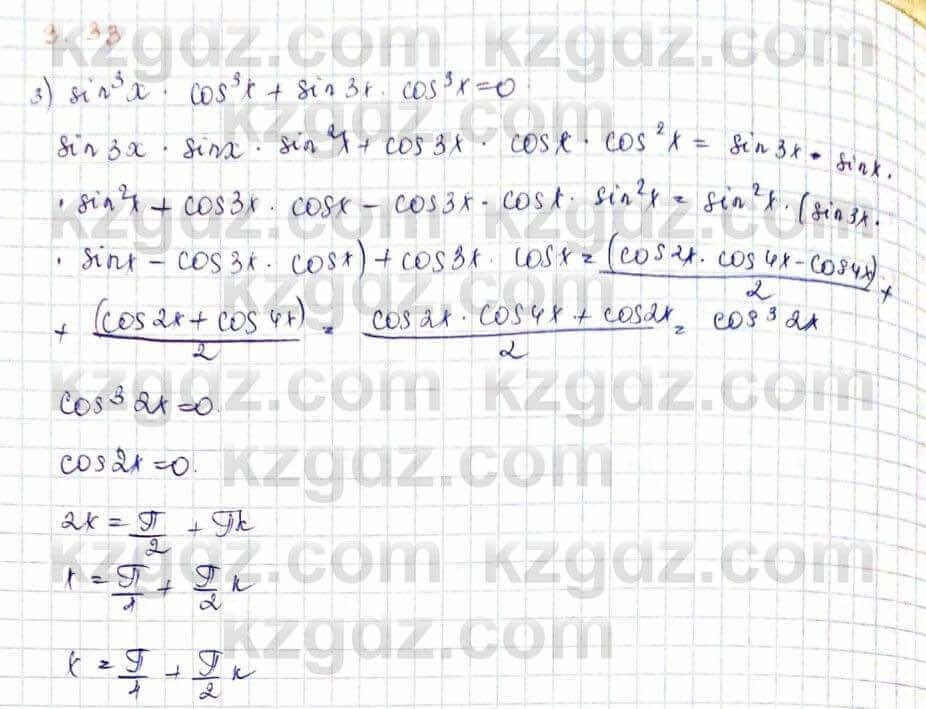 3.33
3) sin³x · cos³x + sin3x · cos³x = 0
sin3x · sinx · sin²x + cos3x · cosx · cos²x = sin3x · sinx ·
· sin²x + cos3x · cosx − cos3x · cosx · sin²x = sin²x · (sin3x ·
· sinx − cos3x · cosx) + cos3x · cosx = (cos2x · cos4x − cos4x)/2 +
+ (cos2x + cos4x)/2 = (cos2x · cos4x + cos2x)/2 = cos³2x
cos³2x = 0.
cos2x = 0.
2x = π/2 + πk
x = π/4 + π/2 k
x = π/4 + π/2 k
kzgdz.com kzgdz.com
kzgdz.com
kzgdz.com kzgdz.com
kzgdz.com
kzgdz.com kzgdz.com
kzgdz.com
kzgdz.com kzgdz.com
kzgdz.com